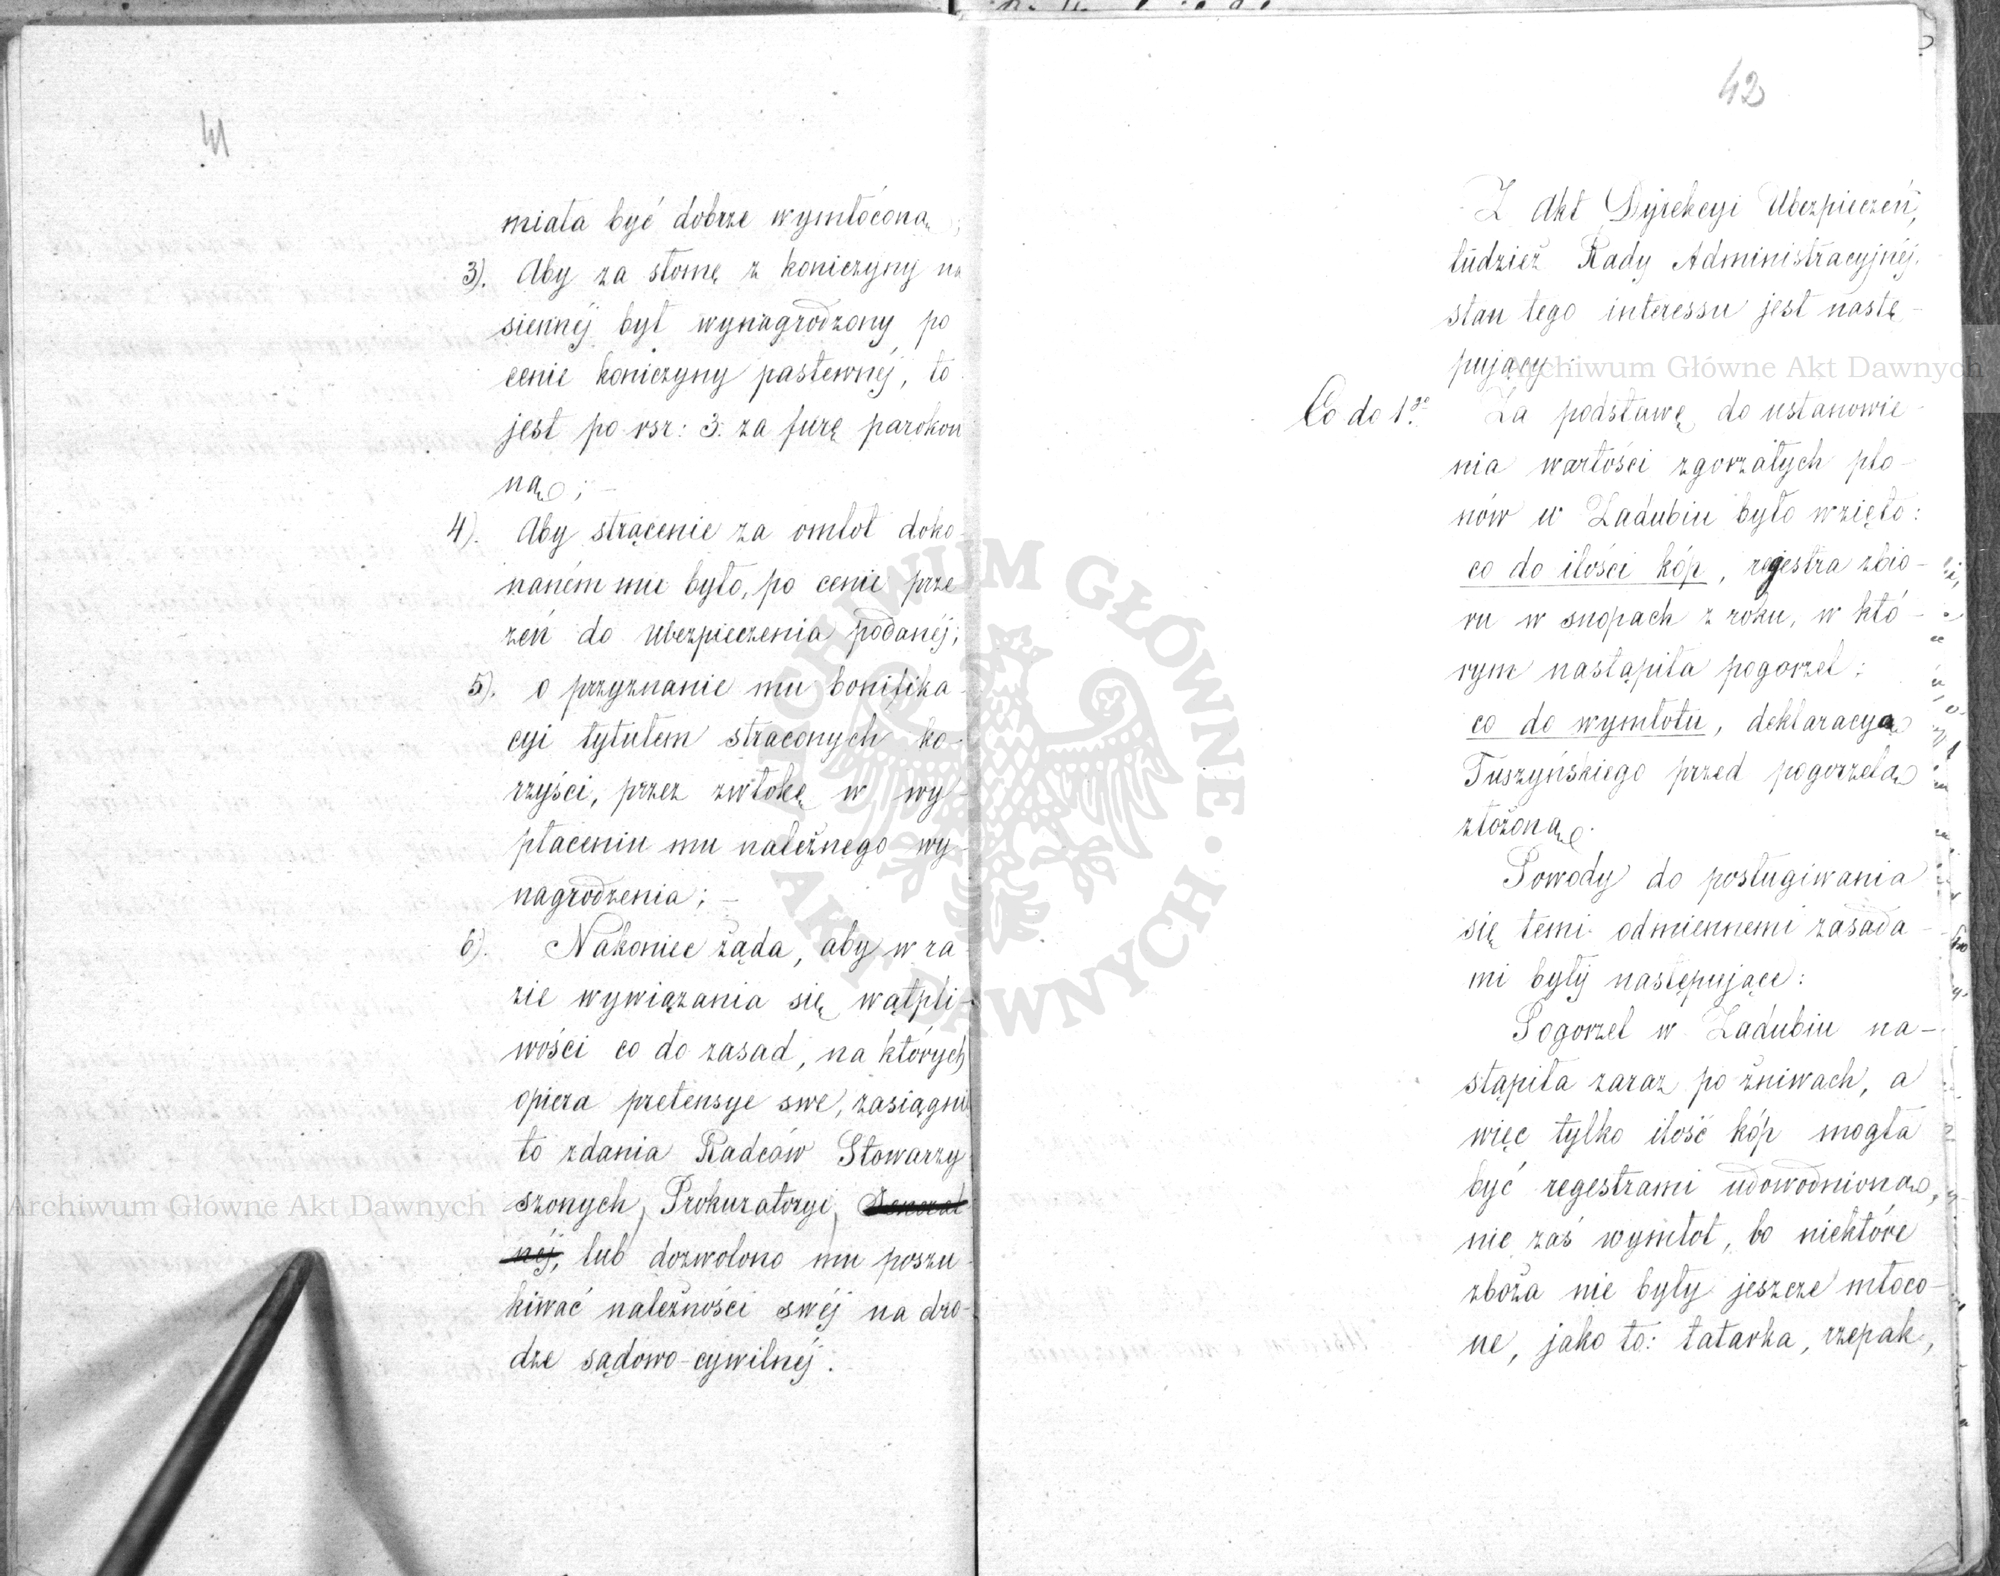 41
miała być dobrze wymłóconą;
3). Aby za słomę z koniczyny na
siennéj był wynagrodzony po
cenie koniczyny pastewnéj, to
jest po rsr: 3. za furę parokon
ną; –
4). Aby strącenie za omłot doko-
naném mu było, po cenie prze
zeń do ubezpieczenia podanéj;
5). o przyznanie mu bonifika-
cyi tytułem straconych ko-
rzyści, przez zwłokę w wy-
płaceniu mu należnego wy-
nagrodzenia; –
6). Nakoniec żąda, aby w ra-
zie wywiązania się wątpli-
wości co do zasad, na których
opiera pretensye swe, zasiągnię
to zdania Radców Stowarzy
szonych, Prokuratoryi, General
néj, lub dozwolono mu poszu-
kiwać należności swéj na dro-
dze sądowo-cywilnéj.
42
Z Akt Dyrekcyi Ubezpieczeń,
tudzież Rady Administracyjnéj
stan tego interessu jest nastę-
pujący
Co do 1go. Za podstawę do ustanowie-
nia wartości zgorzałych plo-
nów w Zadubiu było wzięto:
co do ilości kóp, regestra zbio-
ru w snopach z roku, w któ-
rym nastąpiła pogorzel;
co do wymłotu, deklaracya
Tuszyńskiego przed pogorzelą
złożoną.
Powody do posługiwania
się temi odmiennemi zasada-
mi były następujące:
Pogorzel w Zadubiu na-
stąpiła zaraz po żniwach, a
więc tylko ilość kóp mogła
być regestrami udowodnioną,
nie zaś wymłot, bo niektóre
zboża nie były jeszcze młóco-
ne, jako to: tatarka, rzepak,
ARCHIWUM GŁÓWNE · AKT DAWNYCH ·
Archiwum Główne Akt Dawnych
Archiwum Główne Akt Dawnych